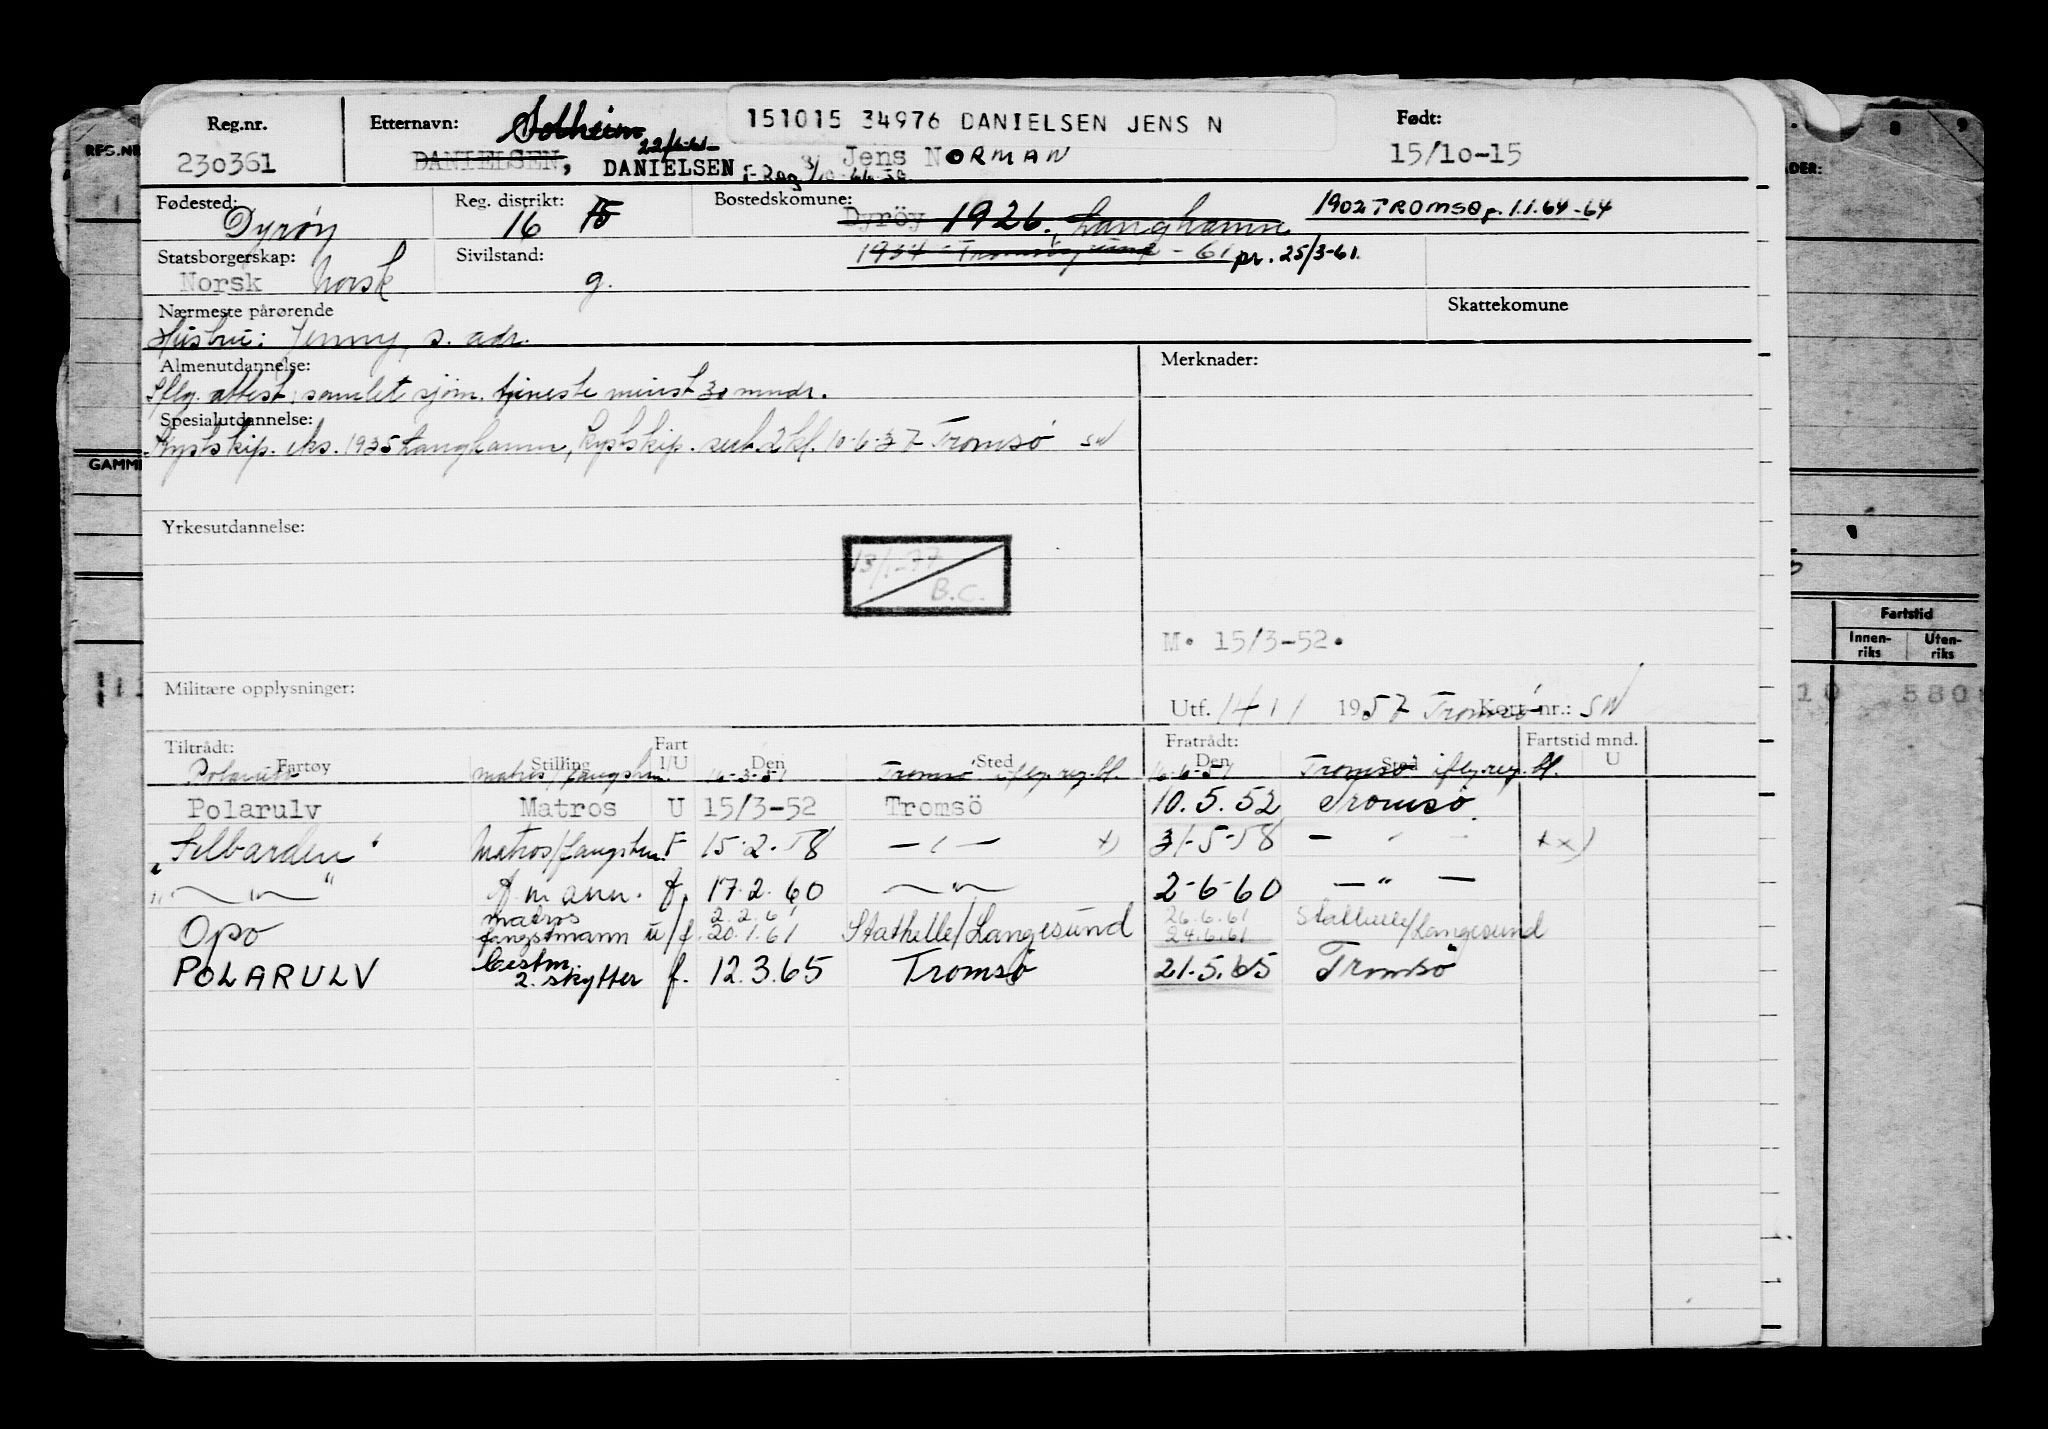 Reg.nr. Etternavn: Solheim 151015 34976 DANIELSEN JENS N Født:
22/6-61
230361 DANIELSEN, DANIELSEN Jens NORMAN 15/10-15
Fødested: Reg. distrikt: Bostedskomune:
Dyrøy 16 Dyrøy 1926. Langhamn 1902 TROMSØ p. 1.1.64-64
Statsborgerskap: Sivilstand: 1934 - Tromsøysund - 61 pr. 25/3-61.
Norsk Norsk g.
Nærmeste pårørende Skattekomune
Hustru: Jenny, s. adr.
Almenutdannelse: Merknader:
Iflg. attest, samlet sjøm. tjeneste minst 30 mndr.
Spesialutdannelse:
Kystskip. eks. 1935 Langhamn, Kystskip. sert. 2 kl. 10-6-37 Tromsø SW
Yrkesutdannelse:
13/1-77
B.C.
M. 15/3-52.
Militære opplysninger:
Utf. 14/1 1957 Tromsø Kort nr.: SW
Tiltrådt: Fart Fratrådt: Fartstid mnd.
Fartøy Stilling I/U Den Sted Den Sted U
Polarulv matros/fangstm. Tromsø iflg. reg. bl. Tromsø iflg. reg. bl.
Polarulv Matros U 15/3-52 Tromsö 10.5.52 Tromsø
"Selbarden" Matros/fangstm. F 15-2-58 — " — x) 31-5-58 — " — xx)
" — " — " f.mann. f. 17.2.60 — " — 2-6-60 — " —
matros 2.2.61 26.6.61
Opo fangstmann u/f. 20.1.61 Stathelle/Langesund 24.6.61 Stathelle/Langesund
Bestm.
POLARULV 2. skytter f. 12.3.65 Tromsø 21.5.65 Tromsø
REG.NR
GAMM
8 9
DER:
Fartstid
Innen-
riks
Uten-
riks
10 580